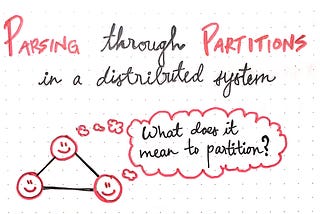 PARSING through PARTITIONS
in a distributed system
What does it
mean to partition?